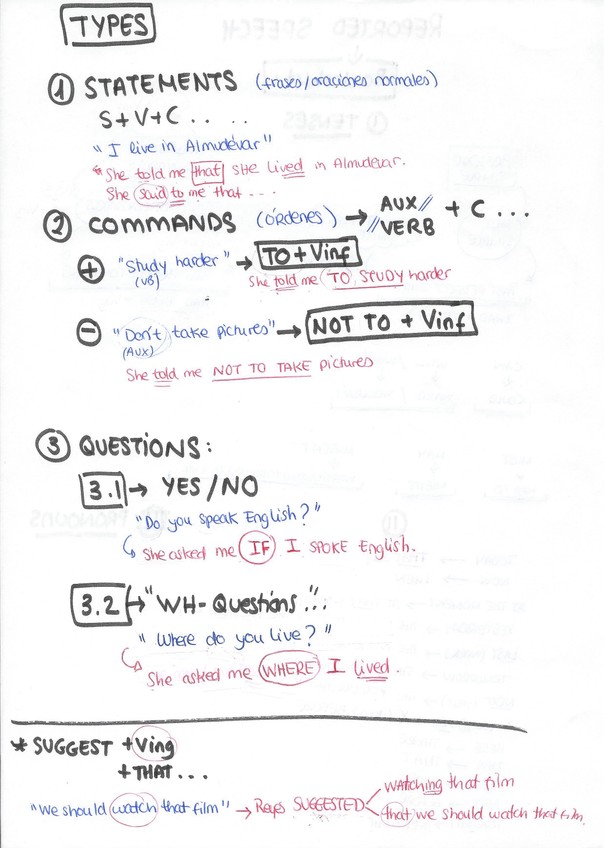 TYPES
① STATEMENTS (frases/oraciones normales)
S+V+C . . . .
"I live in Almudévar"
*She told me that she lived in Almudévar.
She said to me that ...
② COMMANDS (órdenes) → AUX// //VERB + C ...
⊕ "Study harder" → TO + Vinf
(VB) She told me TO STUDY harder
⊖ "Don't take pictures" → NOT TO + Vinf
(AUX)
She told me NOT TO TAKE pictures
③ QUESTIONS:
3.1 → YES/NO
"Do you speak English?"
She asked me IF I SPOKE English.
3.2 → "WH-Questions":
"Where do you live?"
She asked me WHERE I lived.
* SUGGEST + Ving
+ THAT...
watching that film
"We should watch that film" → Reyes SUGGESTED
that we should watch that film.